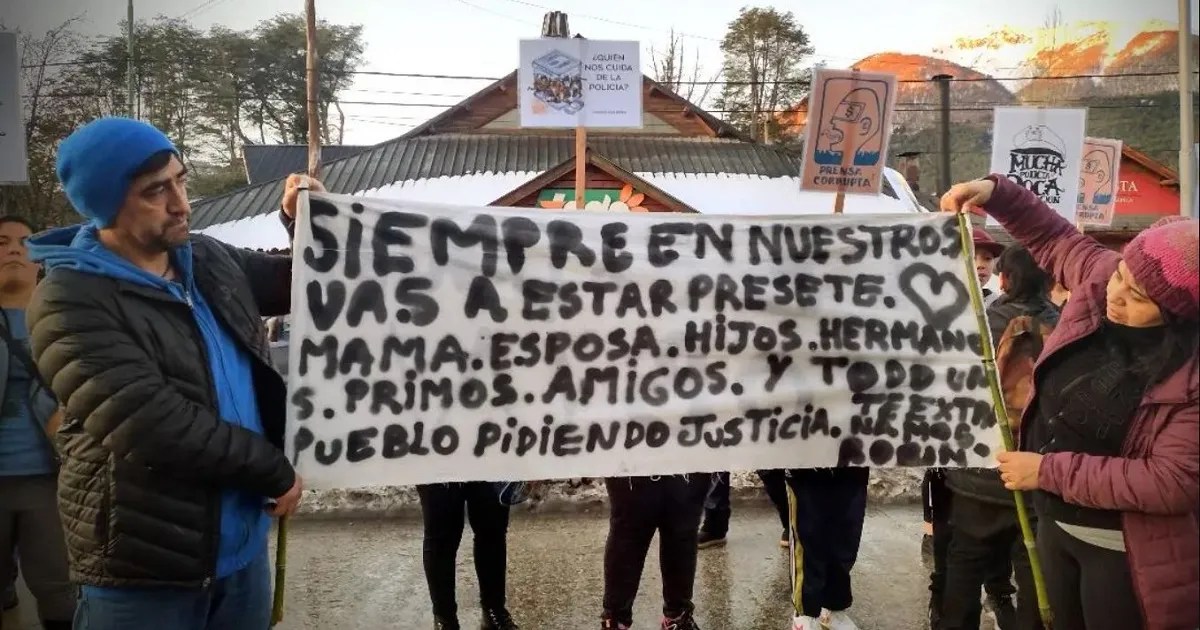 ¿QUIÉN
NOS CUIDA
DE LA
POLICIA?
PRENSA
CORRUPTA!
MUCHA
POLICIA
POCA
SIEMPRE EN NUESTROS
VAS A ESTAR PRESETE.
MAMA. ESPOSA. HIJOS. HERMANO
S. PRIMOS. AMIGOS. Y TODO UN
PUEBLO PIDIENDO JUSTICIA.
TE EXTRA
ÑAMOS
ROBIN.